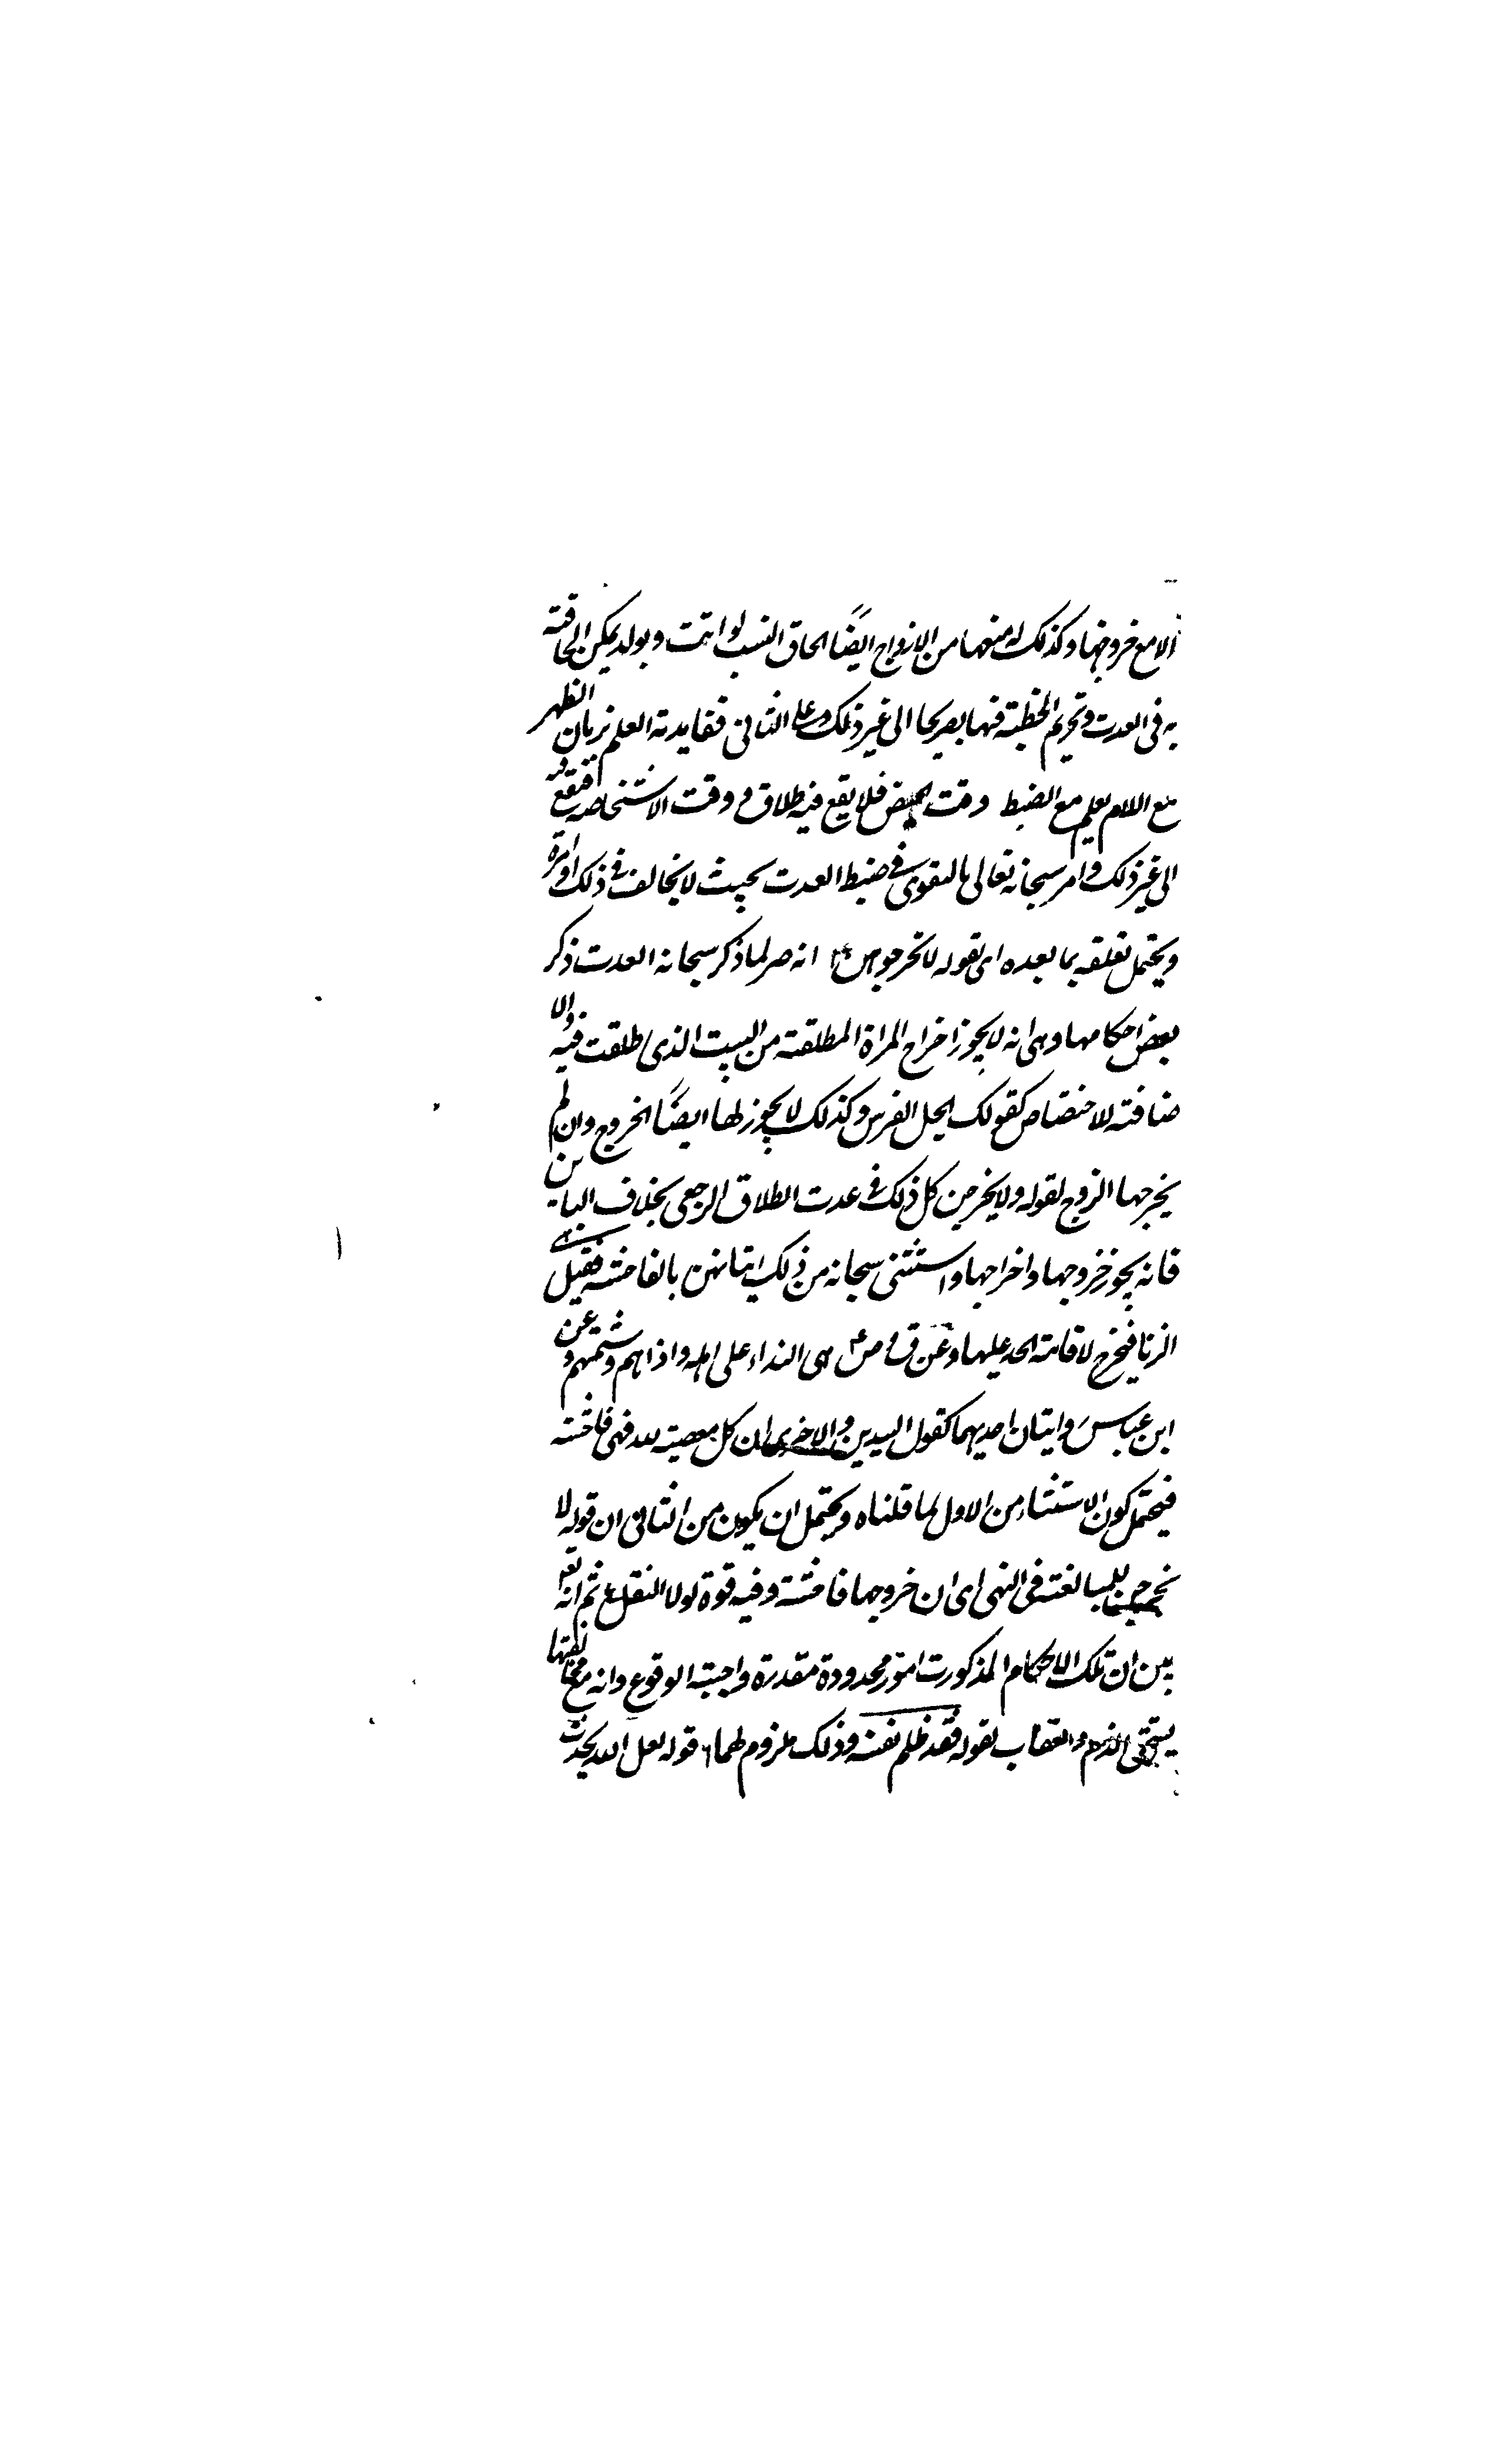 الا مع خروجها وكذلك له منعها من الازواج ايضًا الحاق النسب لو اتت بولد يمكن الحاقه
به فى العدت وتحريم الخطبة فيها تصريحا الى غير ذلك وعلى الثانى ففايدته العلم بزمان الطهر
مع اللام ليعلم مع الضبط وقت الحيض فلا يقع فيه طلاق و وقت الاستحاضه فيقع فيه
الى غير ذلك وامر سبحانه تعالى بالتقوى فى ضبط العدت بحيث لا يخالف فى ذلك اوامره
ويحتمل تعلقه بما بعده اى بقوله لا تخرجوهن انه لما ذكر سبحانه العدت ذكر
بعض احكامها وهى انه لا يجوز اخراج المراة المطلقة من البيت الذى طلقت فيه والا
ضافته للاختصاص كقولك الجل الفرس وكذلك لا يجوز لها ايضًا الخروج وان لم
يخرجها الزوج لقوله ولا يخرجن كل ذلك فى عدت الطلاق الرجعى بخلاف الباين
فانه يجوز خروجها واخراجها واستثنى سبحانه من ذلك اتيانهن بالفاحشه فقيل هى
الزنا فيخرج لاقامة الحد عليها وعن ق و ض هى النداء على اهله واذاهم وشتمهم و عن
ابن عباس روايتان احديهما كقول السيدين والاخرى ان كل معصية لله فهى فاحشه
فيحتمل كون الاستثناء من الاول لما قلناه ويحتمل ان يكون من الثانى ان قوله لا
يخرجن للمبالغة فى النهى اى ان خروجها فاحشة وفيه قوة لولا النقل ثم انه تعالى
بين ان تلك الاحكام المذكورت امور محدودة مقدرة واجبته الوقوع وانه مع مخالفتها
يستحق الذم والعقاب لقوله فقد ظلم نفسه وذلك ملزوم لهما قوله لعل الله يحدث